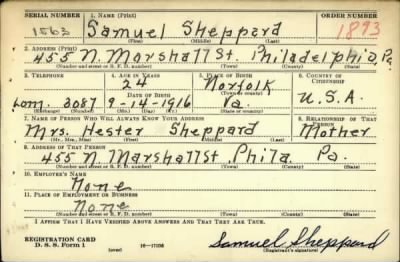 SERIAL NUMBER 1. NAME (Print) ORDER NUMBER
1563 Samuel Sheppard 1893
(First) (Middle) (Last)
2. ADDRESS (Print)
455 N. Marshall St Philadelphia, Pa.
(Number and street or R. F. D. number) (Town) (County) (State)
3. TELEPHONE 4. AGE IN YEARS 5. PLACE OF BIRTH 6. COUNTRY OF CITIZENSHIP
24 Norfolk
DATE OF BIRTH (Town or county)
Lom. 3087 9-14-1916 Va. U.S.A.
(Exchange) (No.) (Mo.) (Day) (Yr.) (State or country)
7. NAME OF PERSON WHO WILL ALWAYS KNOW YOUR ADDRESS 8. RELATIONSHIP OF THAT PERSON
Mrs. Hester Sheppard Mother
(Mr., Mrs., Miss) (First) (Middle) (Last)
9. ADDRESS OF THAT PERSON
455 N. Marshall St. Phila. Pa.
(Number and street or R. F. D. number) (Town) (County) (State)
10. EMPLOYER'S NAME
None
11. PLACE OF EMPLOYMENT OR BUSINESS
None
(Number and street or R. F. D. number) (Town) (County) (State)
I AFFIRM THAT I HAVE VERIFIED ABOVE ANSWERS AND THAT THEY ARE TRUE.
REGISTRATION CARD
D. S. S. Form 1 (over) Samuel Sheppard
(Registrant's signature)